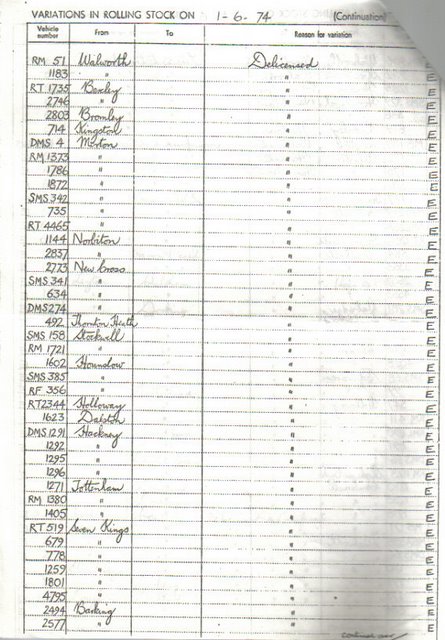 VARIATIONS IN ROLLING STOCK ON 1-6-74 (Continuation)
Vehicle number From To Reason for variation
RM 51 Walworth Delicensed E
1183 " " E
RT 1735 Bexley " E
2746 " " E
2803 Bromley " E
714 Kingston " E
DMS 4 Merton " E
RM 1373 " " E
1786 " " E
1872 " " E
SMS 342 " " E
735 " " E
RT 4465 " " E
1144 Norbiton " E
2837 " " E
2773 New Cross " E
SMS 341 " " E
634 " " E
DMS 274 " " E
492 Thornton Heath " E
SMS 158 Stockwell " E
RM 1721 " " E
1602 Hounslow " E
SMS 385 " " E
RF 356 " " E
RT 2344 Holloway " E
1623 Dalston " E
DMS 1291 Hackney " E
1292 " " E
1295 " " E
1296 " " E
1271 Tottenham " E
RM 1380 " " E
1405 " " E
RT 519 Seven Kings " E
679 " " E
778 " " E
1259 " " E
1801 " " E
4795 " " E
2494 Barking " E
2577 " " E
continued over